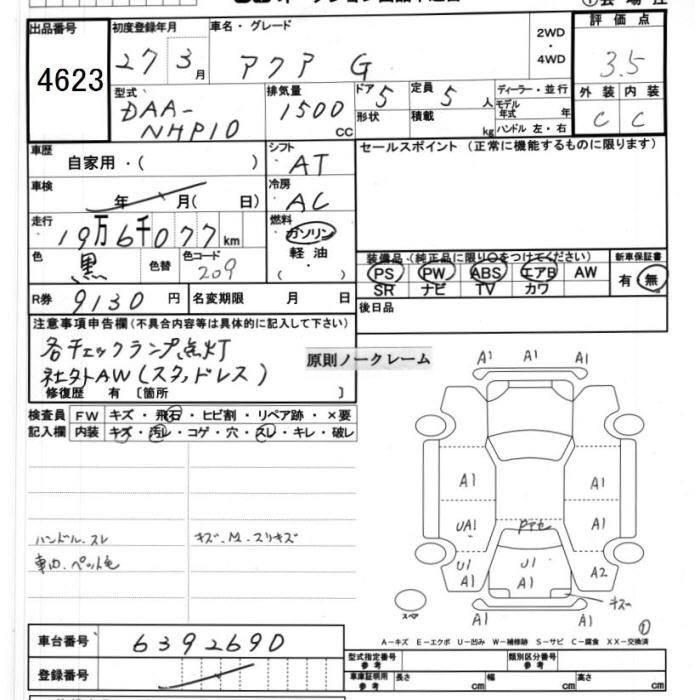 出品番号 初度登録年月 車名・グレード 2WD・4WD 評価点
4623 27 3月 アクア G 3.5
型式 排気量 ドア 定員 ディーラー・並行 外装 内装
DAA-NHP10 1500CC 5 5人 モデル年式 年 C C
形状 積載 kg ハンドル 左・右
車歴 自家用・( ) シフト AT セールスポイント (正常に機能するものに限ります)
車検 年 月( 日) 冷房 AC
走行 19万6千077km 燃料 ガソリン 軽油 ( ・ )
色 黒 色替 色コード 209 装備品 (純正品に限り○をつけてください) 新車保証書
PS PW ABS エアB AW 有・無
SR ナビ TV カワ
R券 9130円 名変期限 月 日 後日品
注意事項申告欄 (不具合内容等は具体的に記入して下さい)
各チェックランプ点灯
社外AW(スタッドレス)
原則ノークレーム
修復歴 有 〔箇所 〕
検査員 FW キズ・飛石・ヒビ割・リペア跡・×要
記入欄 内装 キズ・汚レ・コゲ・穴・スレ・キレ・破レ
ハンドル.スレ キズ.M.スリキズ
車内.ペット毛
A1 A1 A1
A1 A1
UA1 A1
U1 U1
A1 A1 A2
キズー
A1 A1
スペア
A-キズ E-エクボ U-凹み W-補修跡 S-サビ C-腐食 XX-交換済
車台番号 6392690
登録番号
型式指定番号 参考 類別区分番号 参考
車庫証明用 参考 長さ cm 幅 cm 高さ cm